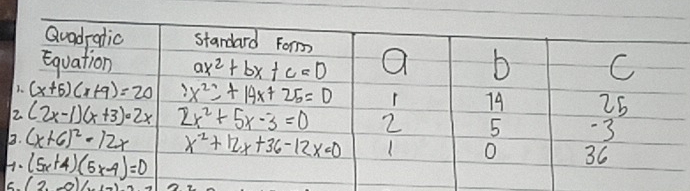 Quadratic Equation Standard Form ax² + bx + c = 0 a b c
1. (x+5)(x+9)=20 x² + 14x + 25 = 0 1 14 25
2. (2x-1)(x+3)=2x 2x² + 5x - 3 = 0 2 5 -3
3. (x+6)² = 12x x² + 12x + 36 - 12x = 0 1 0 36
4. (5x+4)(5x-4)=0